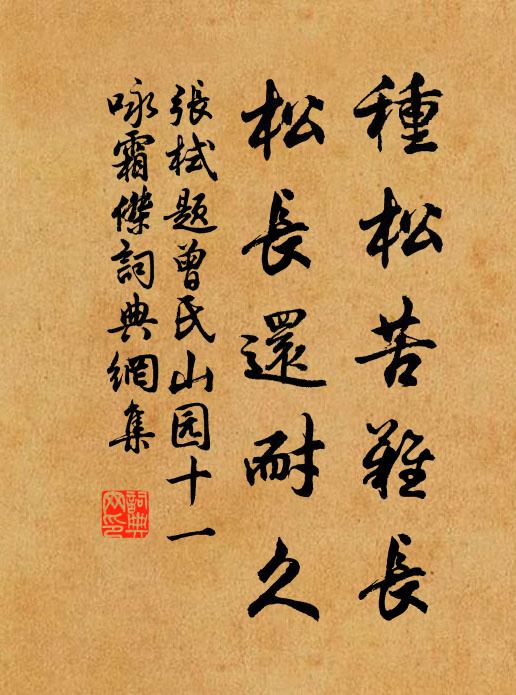 種松苦難長
松長還耐久
張栻題曾氏山园十一
咏霜傑詞典網集
詞典
网印